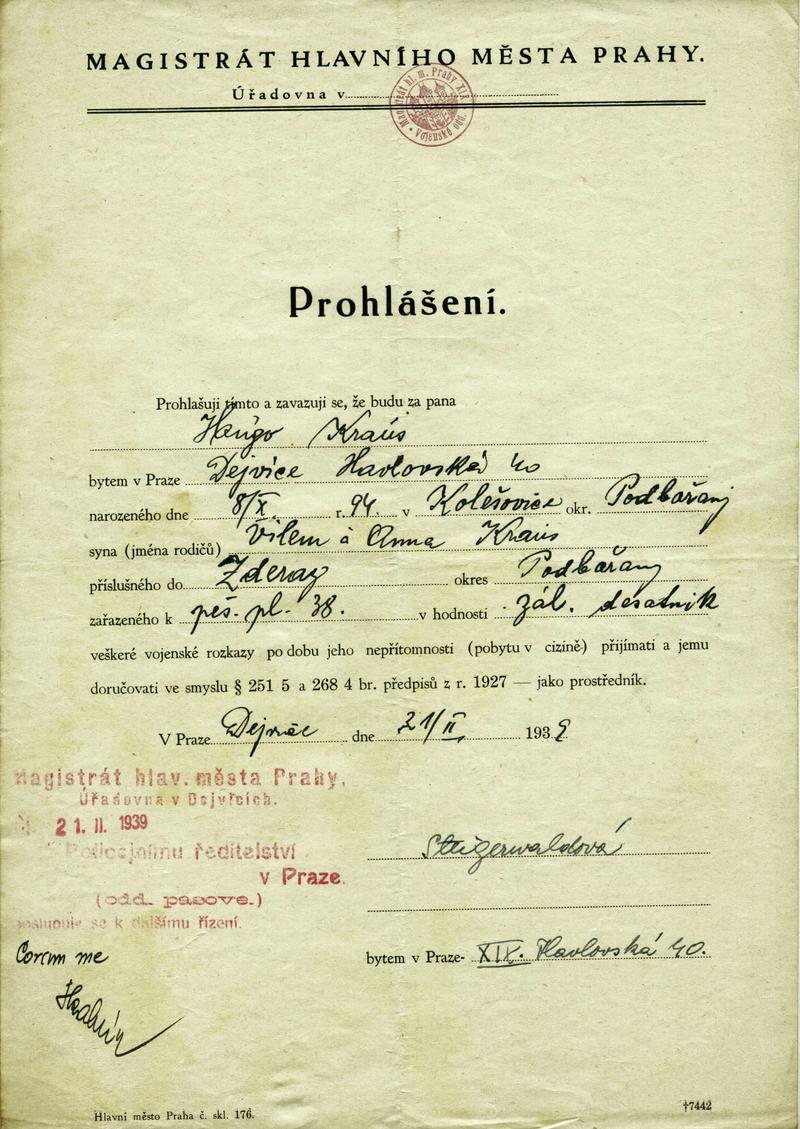 MAGISTRÁT HLAVNÍHO MĚSTA PRAHY.
Úřadovna v
Magistrát hl. m. Prahy XIX
Vojenské odd.
Prohlášení.
Prohlašuji tímto a zavazuji se, že budu za pana
Hugo Kraus
bytem v Praze Dejvice Havlovská 40
narozeného dne 8/X. r. 94. v Kolešovice okr. Podbořany
syna (jména rodičů) Vilem a Anna Kraus
příslušného do Zderaz okres Podbořany
zařazeného k pěš. pl. 38. v hodnosti zál. desatnik
veškeré vojenské rozkazy po dobu jeho nepřítomnosti (pobytu v cizině) přijímati a jemu
doručovati ve smyslu § 251 5 a 268 4 br. předpisů z r. 1927 — jako prostředník.
V Praze Dejvice dne 21/II. 1939
Magistrát hlav. města Prahy,
Úřadovna v Dejvicích.
21. II. 1939
Policejnímu ředitelství
v Praze.
(odd. pasove.)
postupuje se k dalšímu řízení.
Steigerwaldová
bytem v Praze- XIX. Havlovská 40.
Coram me
Hlavní město Praha č. skl. 176.
†7442